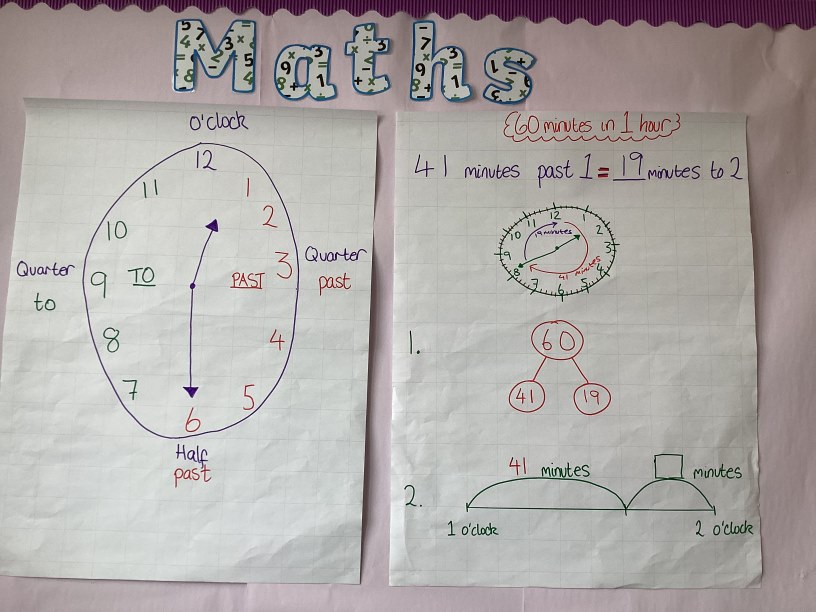 Maths
O'clock
12
11
1
10
2
Quarter
to
9
TO
PAST
3
Quarter
past
8
4
7
5
6
Half
past
{60 minutes in 1 hour}
41 minutes past 1 = 19 minutes to 2
12
11
1
10
2
19 minutes
9
3
8
41 minutes
4
7
6
5
1.
60
41
19
41 minutes
minutes
2.
1 o'clock
2 o'clock